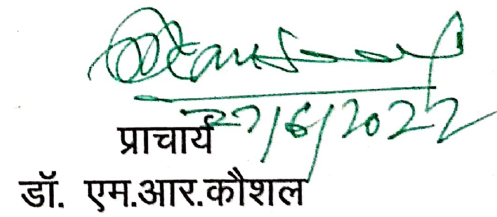 27/6/2022
प्राचार्य
डॉ. एम.आर.कौशल